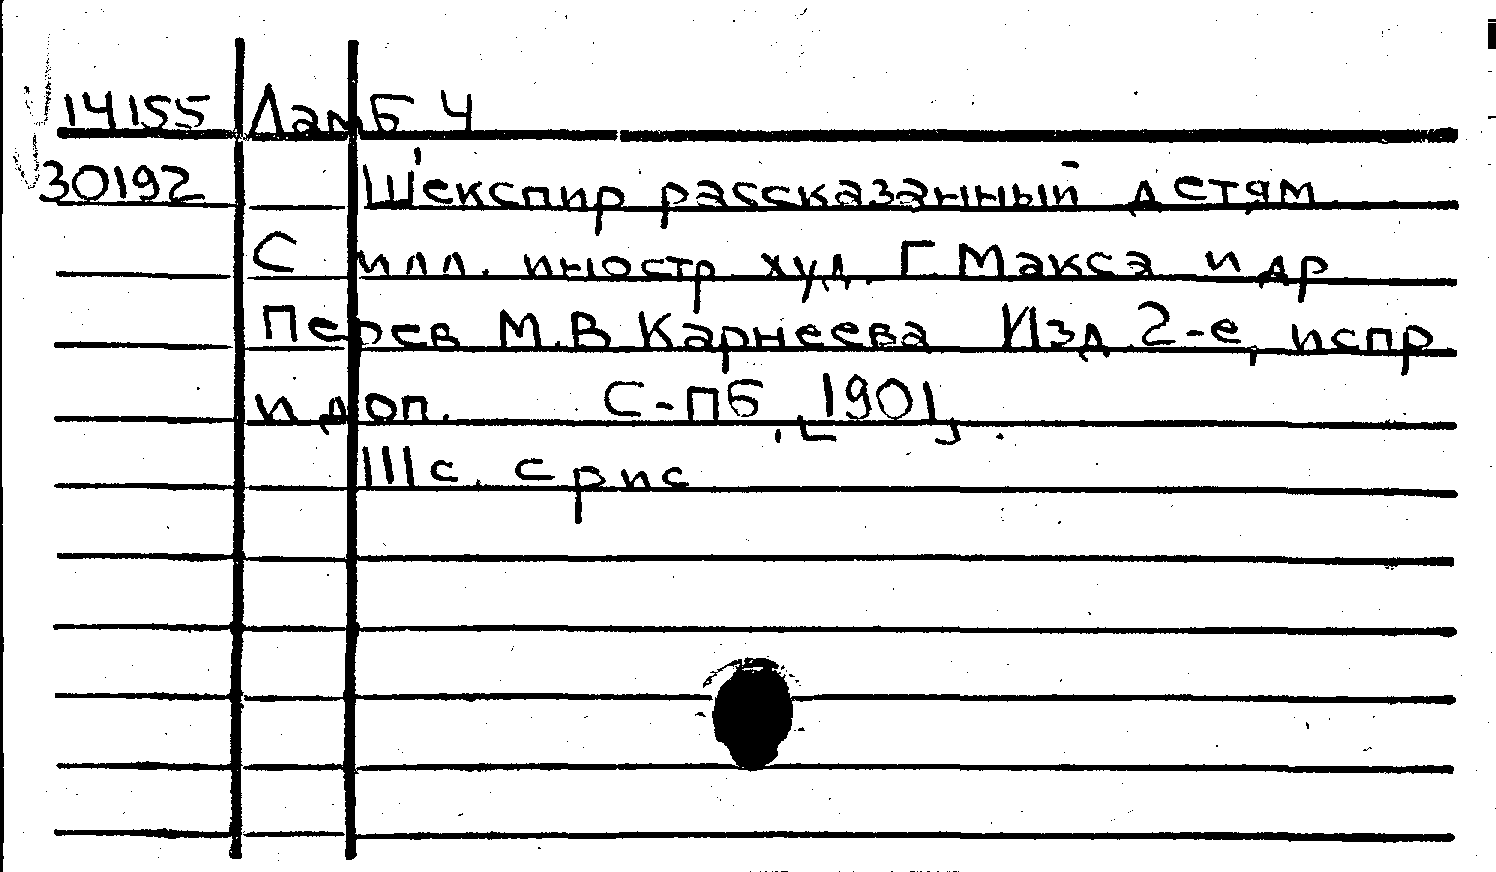 14155 Ламб Ч
30192 Шекспир рассказанный детям
С илл. иностр худ. Г Макса и др
Перев М.В Карнеева Изд 2-е, испр
и доп. С-Пб, [1901].
IIIс. с рис